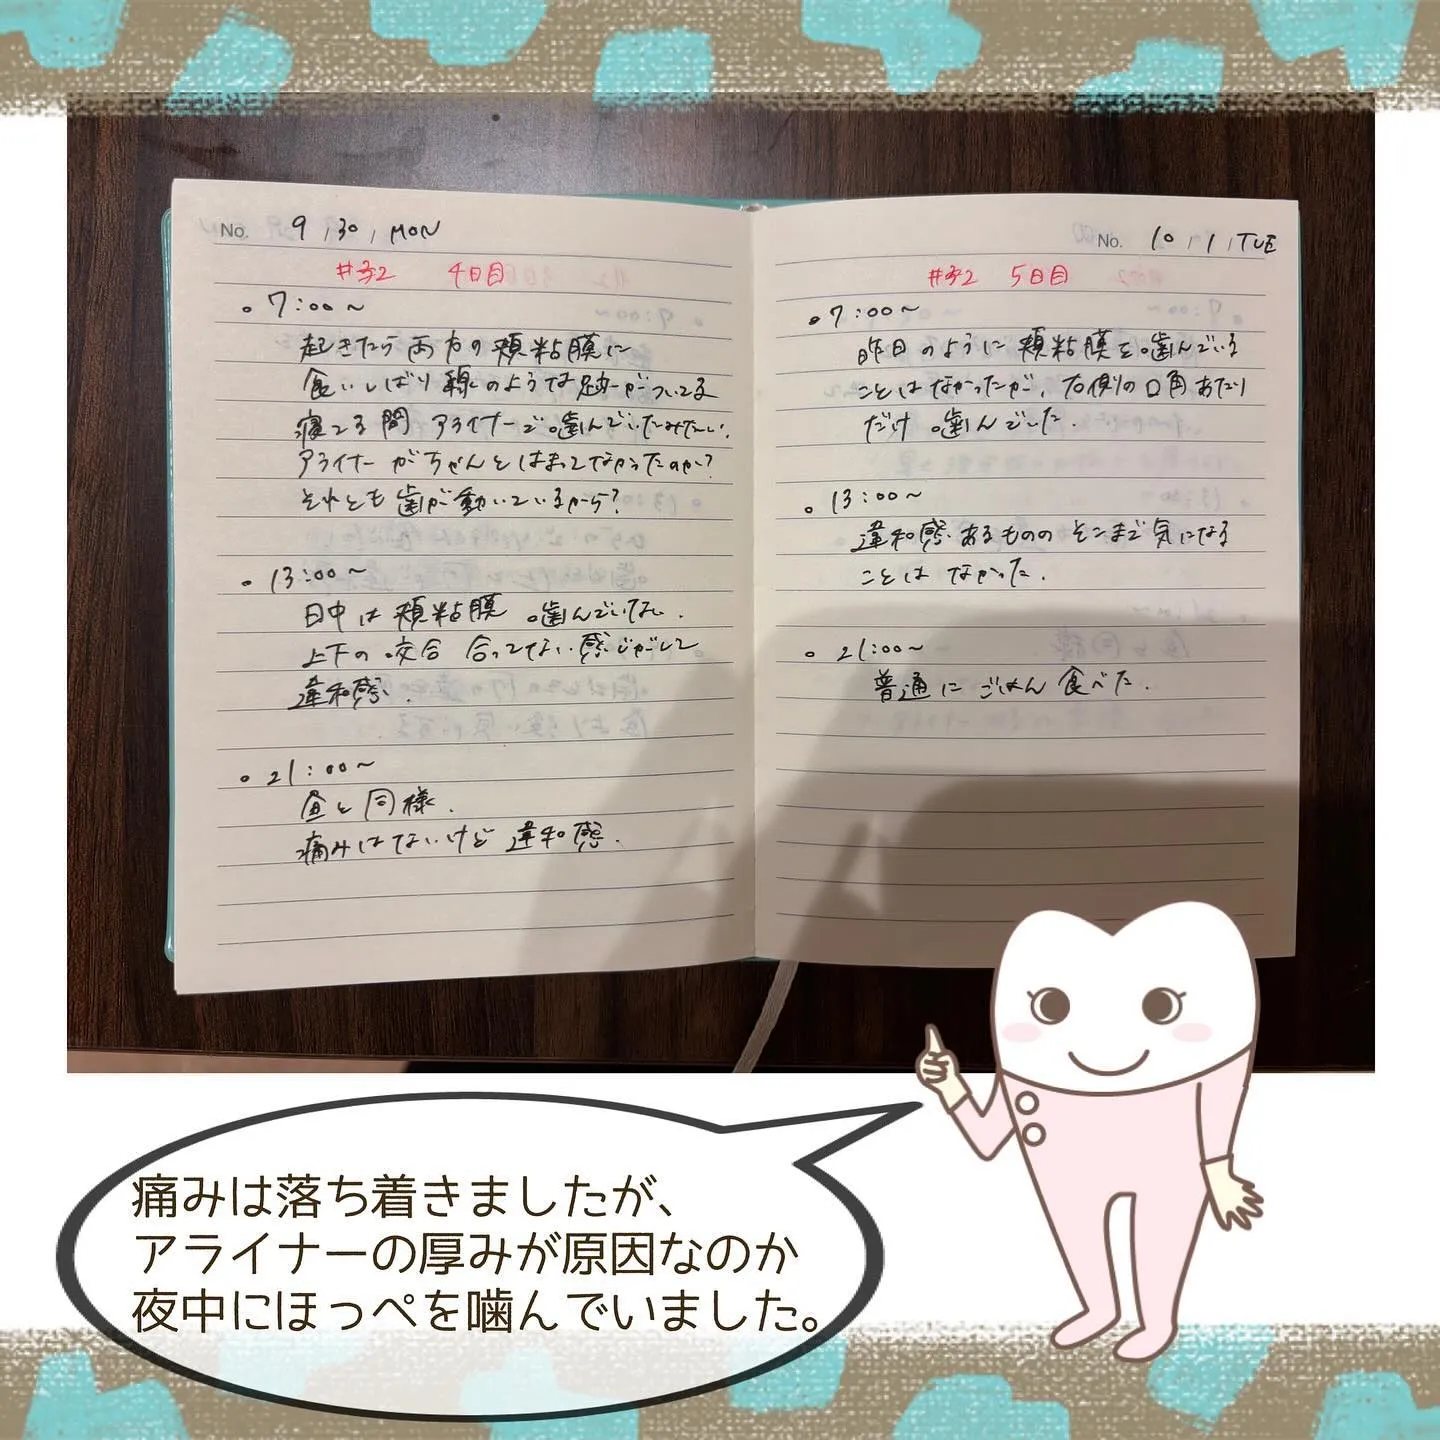 No. 9 / 30 / MON
#32 4日目
7:00〜
起きたら両方の頬粘膜に
食いしばり線のような跡がついてる
寝てる間アライナーで噛んでいたみたい.
アライナーがちゃんとはまってなかったのか?
それとも歯が動いているから?
13:00〜
日中は頬粘膜噛んでいない.
上下の咬合合ってない感じがして
違和感.
21:00〜
昼と同様.
痛みはないけど違和感.
No. 10 / 1 / TUE
#32 5日目
7:00〜
昨日のように頬粘膜を噛んでいる
ことはなかったが、右側の口角あたり
だけ噛んでいた.
13:00〜
違和感あるもののそこまで気になる
ことはなかった.
21:00〜
普通にごはん食べた.
痛みは落ち着きましたが、
アライナーの厚みが原因なのか
夜中にほっぺを噛んでいました。